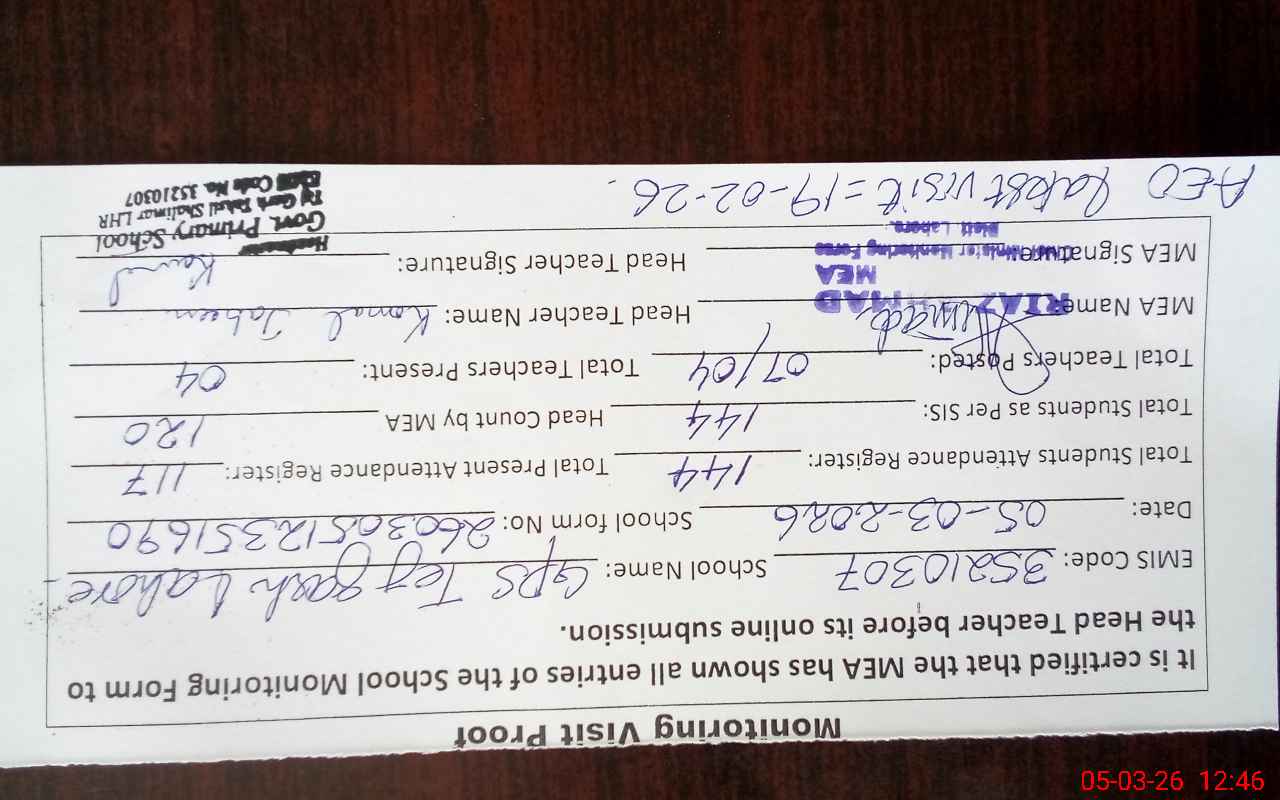 Monitoring Visit Proof
It is certified that the MEA has shown all entries of the School Monitoring Form to
the Head Teacher before its online submission.
EMIS Code: 35210307 School Name: GPS Tej garh Lahore
Date: 05-03-2026 School form No: 26030512351690
Total Students Attendance Register: 144 Total Present Attendance Register: 117
Total Students as Per SIS: 144 Head Count by MEA 120
Total Teachers Posted: 07/04 Total Teachers Present: 04
MEA Name: RIAZ AHMAD Head Teacher Name: Komal
MEA
MEA Signature: Head Teacher Signature: Komal
Monitoring Force
Distt Lahore.
Headmaster
Govt. Primary School
Tej Garh Tehsil Shalimar LHR
Code No. 35210307
AEO latest visit = 19-02-26.
05-03-26 12:46